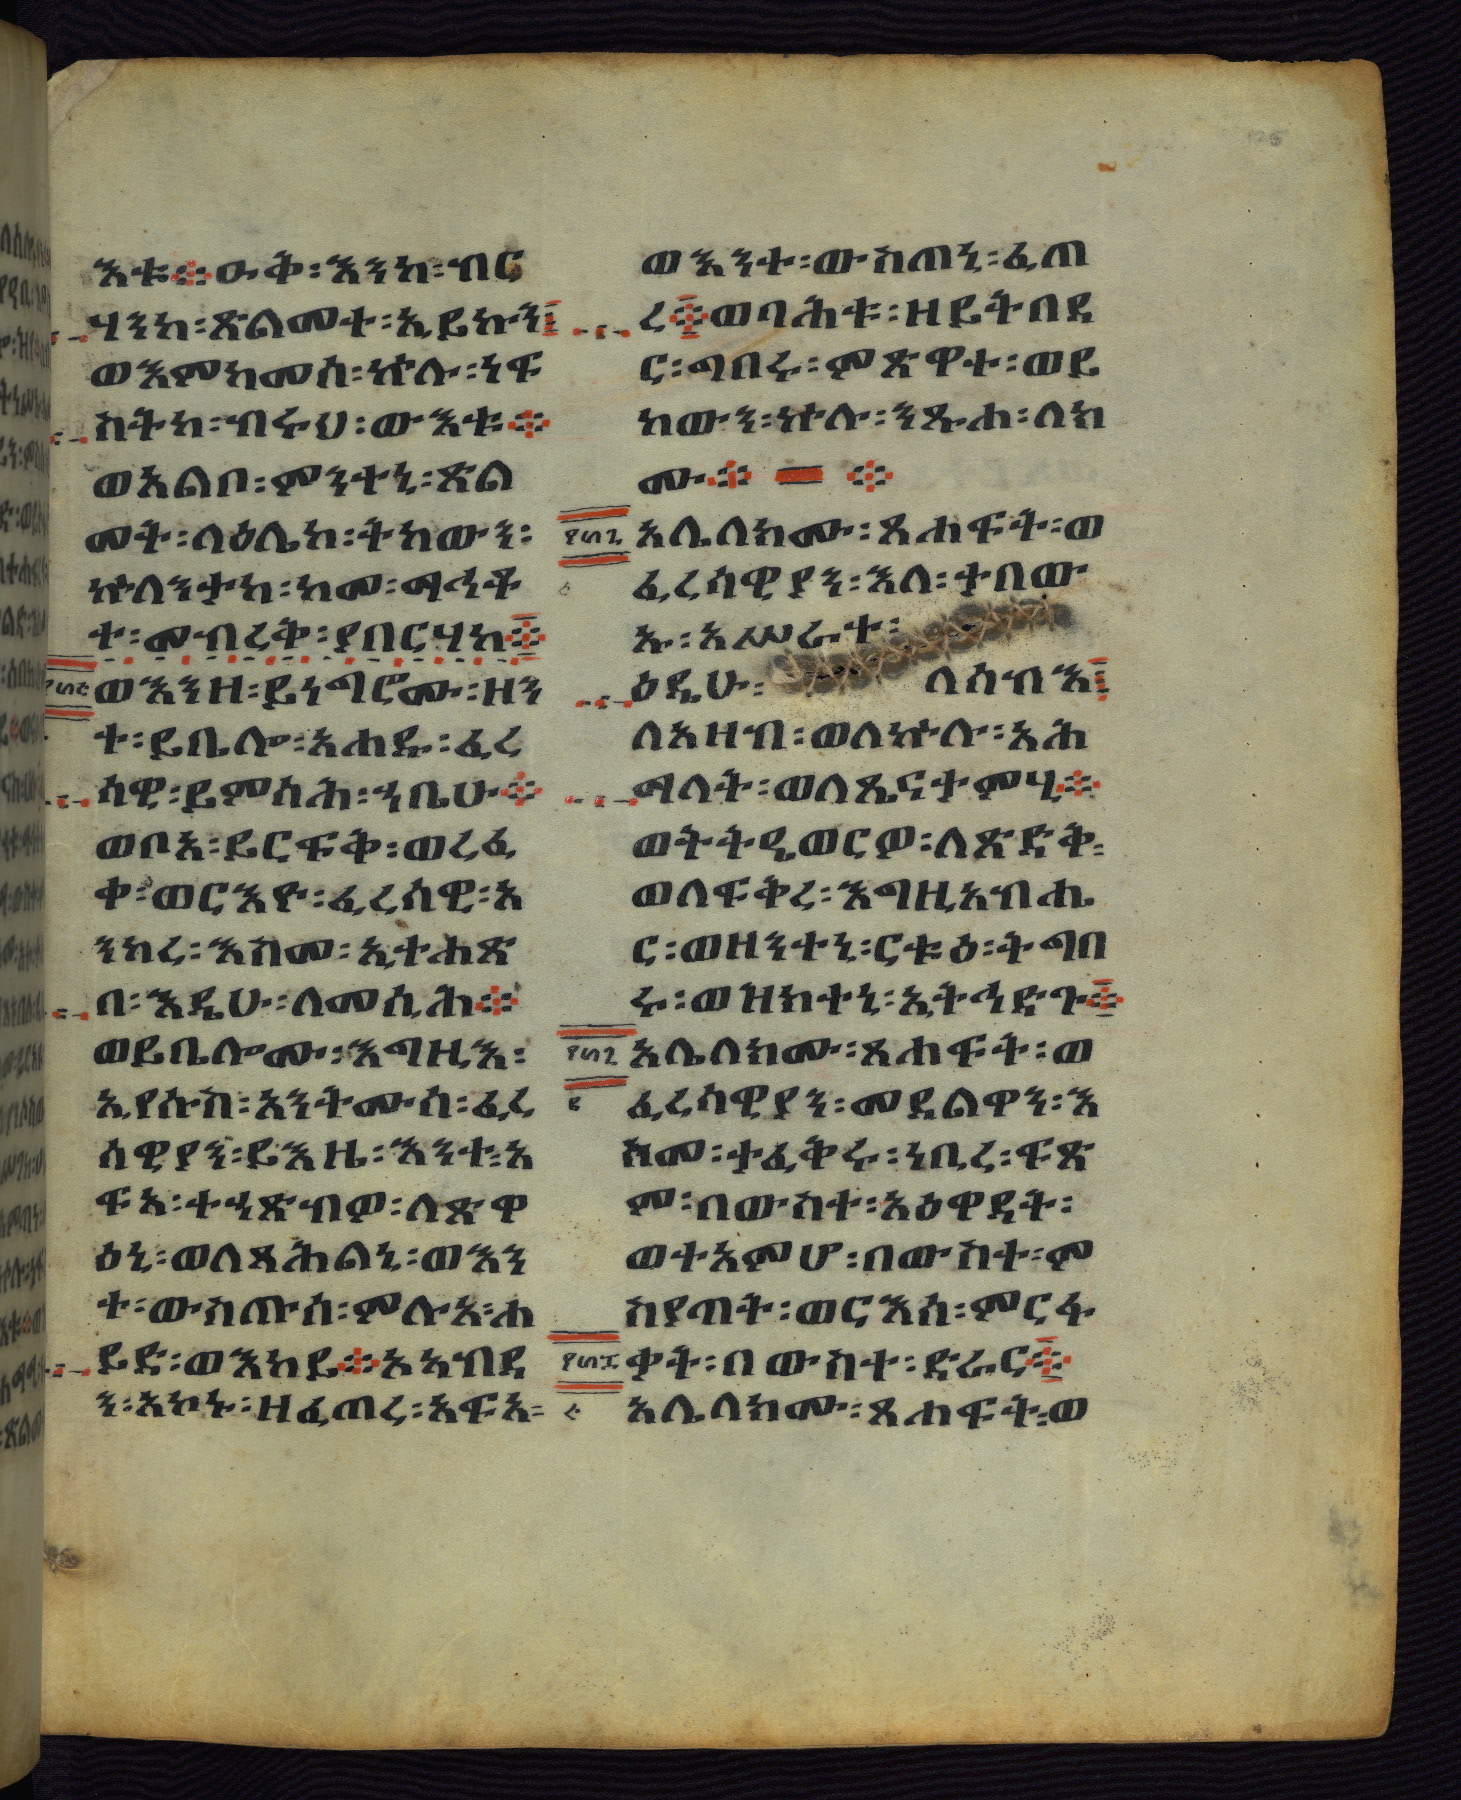 እቱ። ዑቅ፡እንከ፡ብር
ሃንከ፡ጽልመተ፡ኢይኩን፤
ወእምከመሰ፡ኵሉ፡ነፍ
ስትከ፡ብሩህ፡ውእቱ።
ወአልቦ፡ምንተኒ፡ጽል
መት፡ላዕሌከ፡ትከውን፡
ኵለንታከ፡ከመ፡ማኅቶ
ተ፡መብረቅ፡ያበርሃከ።
ወእንዘ፡ይነግሮሙ፡ዘን
ተ፡ይቤሎ፡አሐዱ፡ፈረ
ሳዊ፡ይምሳሕ፡ኀቤሁ።
ወቦአ፡ይርፍቅ፡ወረፈ
ቀ፡ወርእዮ፡ፈረሳዊ፡አ
ንከረ፡እስመ፡ኢተሐጽ
በ፡እዴሁ፡ለመሲሕ።
ወይቤሎሙ፡እግዚእ፡
ኢየሱስ፡አንትሙሰ፡ፈረ
ሳዊያን፡ይእዜ፡እንተ፡አ
ፍአ፡ተኀጽብዎ፡ለጽዋ
ዕኒ፡ወለጻሕልኒ፡ወእን
ተ፡ውስጡሰ፡ምሉእ፡ሐ
ይድ፡ወእከይ። አአብዳ
ን፡አኮኑ፡ዘፈጠረ፡አፍአ፡
ወእንተ፡ውስጠኒ፡ፈጠ
ረ። ወባሕቱ፡ዘይትበዳ
ር፡ግበሩ፡ምጽዋተ፡ወይ
ከውን፡ኵሉ፡ንጹሐ፡ለክ
ሙ።
፻፶፫ አሌለክሙ፡ጸሐፍት፡ወ
ፈረሳዊያን፡እለ፡ተበው
ኡ፡አሥራተ፡
ዕዴሁ፡ ለሰብእ፤
ለአዘብ፡ወለኵሉ፡አሕ
ማላት፡ወለጼናተምሂ።
ወትትዔወርዎ፡ለጽድቅ፡
ወለፍቅረ፡እግዚአብሔ
ር፡ወዘንተኒ፡ርቱዕ፡ትግበ
ሩ፡ወዝክተኒ፡ኢትኅድጉ።
፻፶፫ አሌለክሙ፡ጸሐፍት፡ወ
ፈረሳዊያን፡መደልዋን፡እ
ስመ፡ታፈቅሩ፡ነቢረ፡ፍጽ
ም፡በውስተ፡አዕዋዳት፡
ወተአምሆ፡በውስተ፡ም
ስየጣት፡ወርእሰ፡ምርፋ
ቃት፡በውስተ፡ድራር።
አሌለክሙ፡ጸሐፍት፡ወ